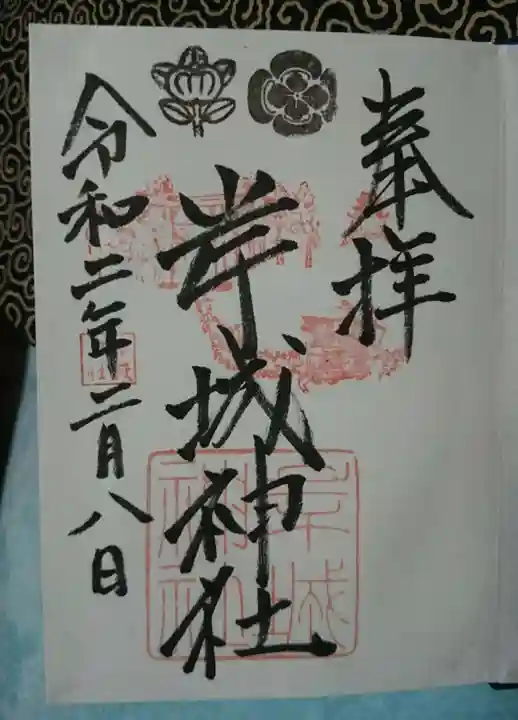 奉拝
岸城神社
令和二年二月八日
岸城
神社